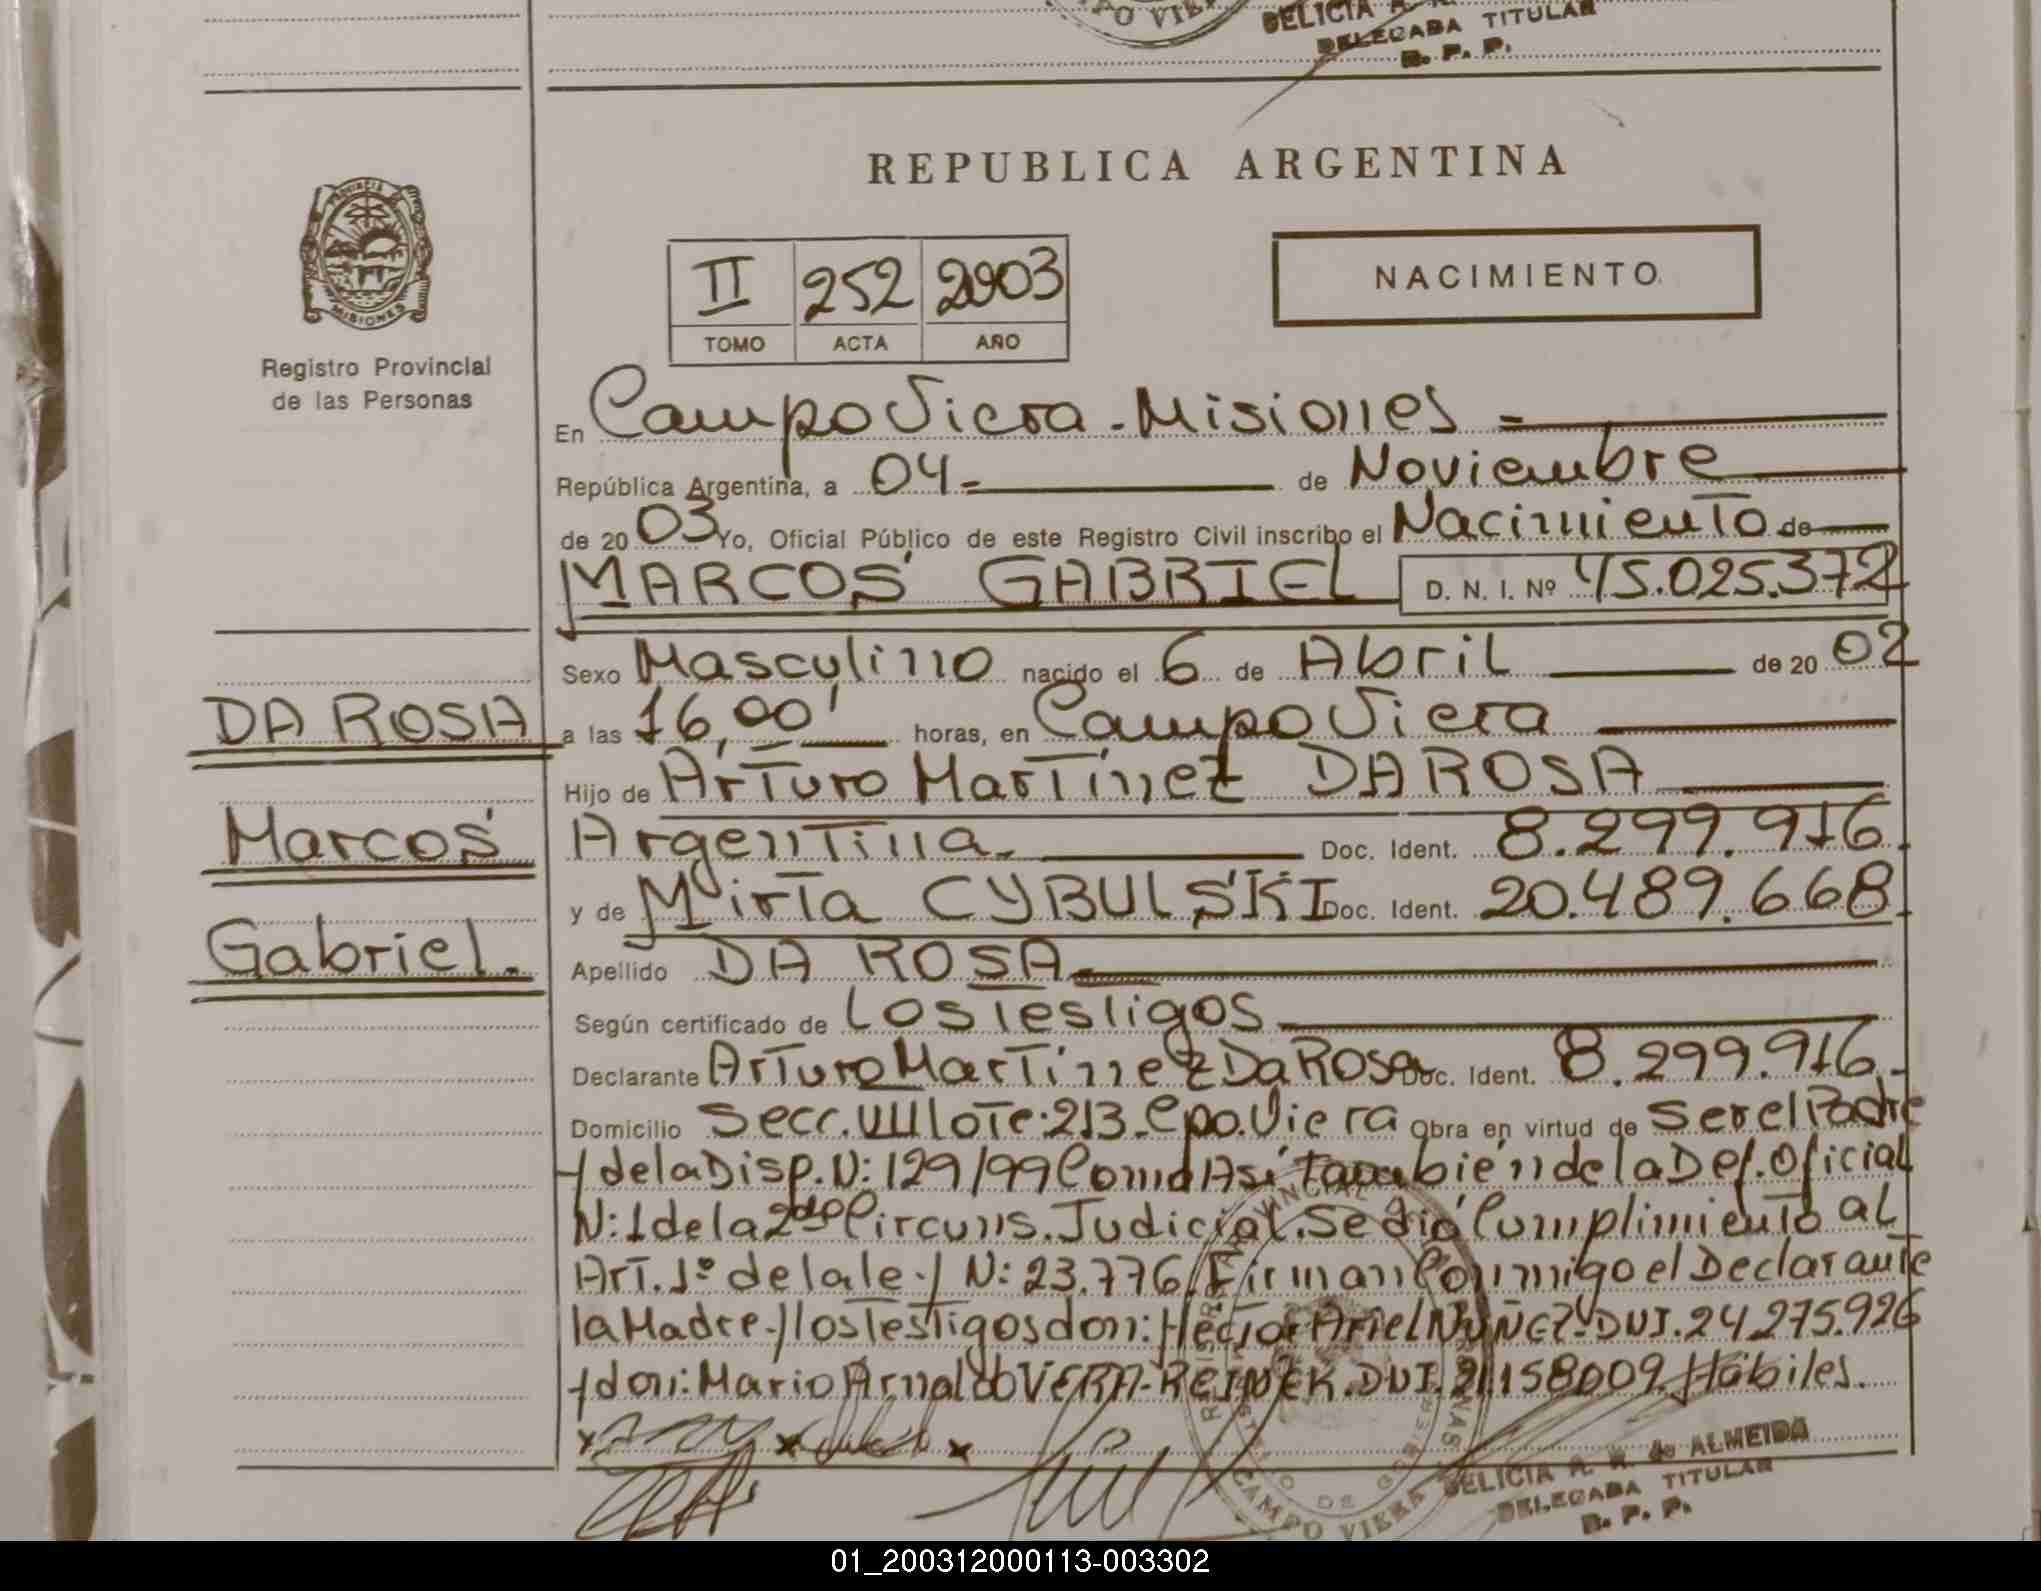 CAMPO VIERA
DELICIA A.
DELEGADA TITULAR
R. P. P.
REPUBLICA ARGENTINA
PROVINCIA DE
MISIONES
Registro Provincial
de las Personas
II 252 2003
TOMO ACTA AÑO
NACIMIENTO
En Campo Viera - Misiones =
República Argentina, a 04- de Noviembre
de 20 03 Yo, Oficial Público de este Registro Civil inscribo el Nacimiento de
MARCOS GABRIEL D. N. I. Nº 45.025.372
Sexo Masculino nacido el 6 de Abril de 20 02
DA ROSA
a las 16,00' horas, en Campo Viera
Hijo de Arturo Martínez DA ROSA
Marcos
Argentina. Doc. Ident. 8.299.916.
y de Mirta CYBULSKI Doc. Ident. 20.489.668.
Gabriel.
Apellido DA ROSA
Según certificado de Los Testigos
Declarante Arturo Martínez Da Rosa Doc. Ident. 8.299.916.-
Domicilio Secc. VIII Lote: 213. Cpo. Viera Obra en virtud de Ser el Padre
y de la Disp. N: 129/99 Como Así También de la Def. Oficial
N: 1 de la 2da Circuns. Judicial. Se dió Cumplimiento al
Art. 1º de la ley N: 23.776. Firman Conmigo el Declarante
la Madre y los Testigos don: Héctor Ariel NUÑEZ-DNI. 24.275.926
y don: Mario Arnaldo VERA-REINER. DNI. 21.158009. Hábiles.
REGISTRO PROVINCIAL DE LAS PERSONAS
MINISTERIO DE GOBIERNO
CAMPO VIERA
DELICIA A. R. de ALMEIDA
DELEGADA TITULAR
R. P. P.
01_200312000113-003302